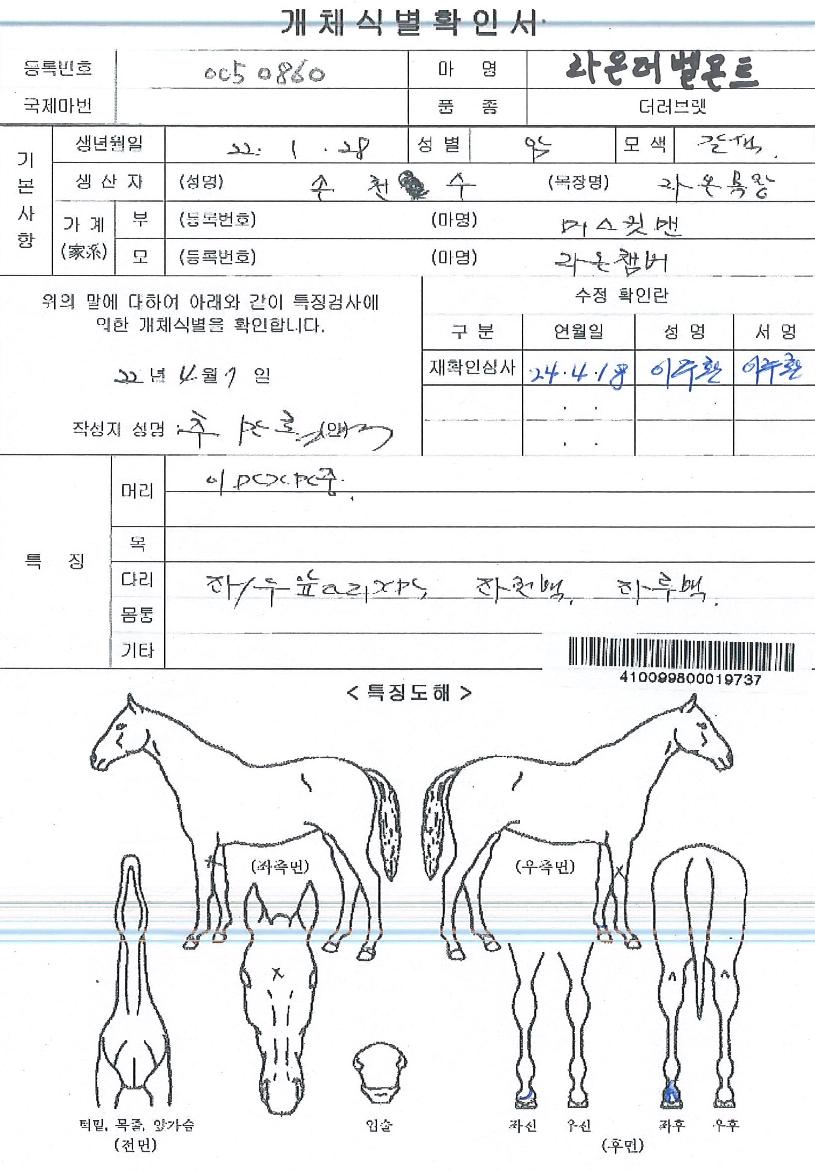 개체식별확인서
등록번호 0050860 마 명 라온더벨몬트
국제마번 품 종 더러브렛
기본사항
생년월일 22. 1. 28 성별 암 모색 갈색.
생산자 (성명) 손 천 수 (목장명) 라온목장
가계 (家系) 부 (등록번호) (마명) 머스킷맨
모 (등록번호) (마명) 라온챔버
위의 말에 대하여 아래와 같이 특징검사에
의한 개체식별을 확인합니다.
22년 4월 7일
작성자 성명 (인)
수정 확인란
구분 연월일 성명 서명
재확인심사 24.4.18 이주환 이주환
특 징
머리
목
다리
몸통
기타
410099800019737
< 특징도해 >
(좌측면) (우측면)
턱밑, 목줄, 앞가슴
(전면)
입술
좌전 우전 좌후 우후
(후면)